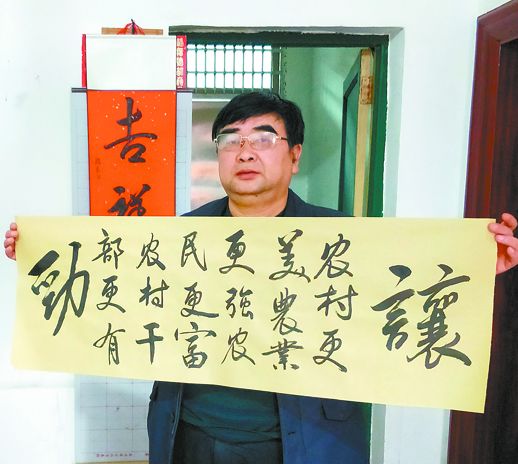 讓
农村更
美農業
更强农
民更富
农村干
部更有
勁
吉祥